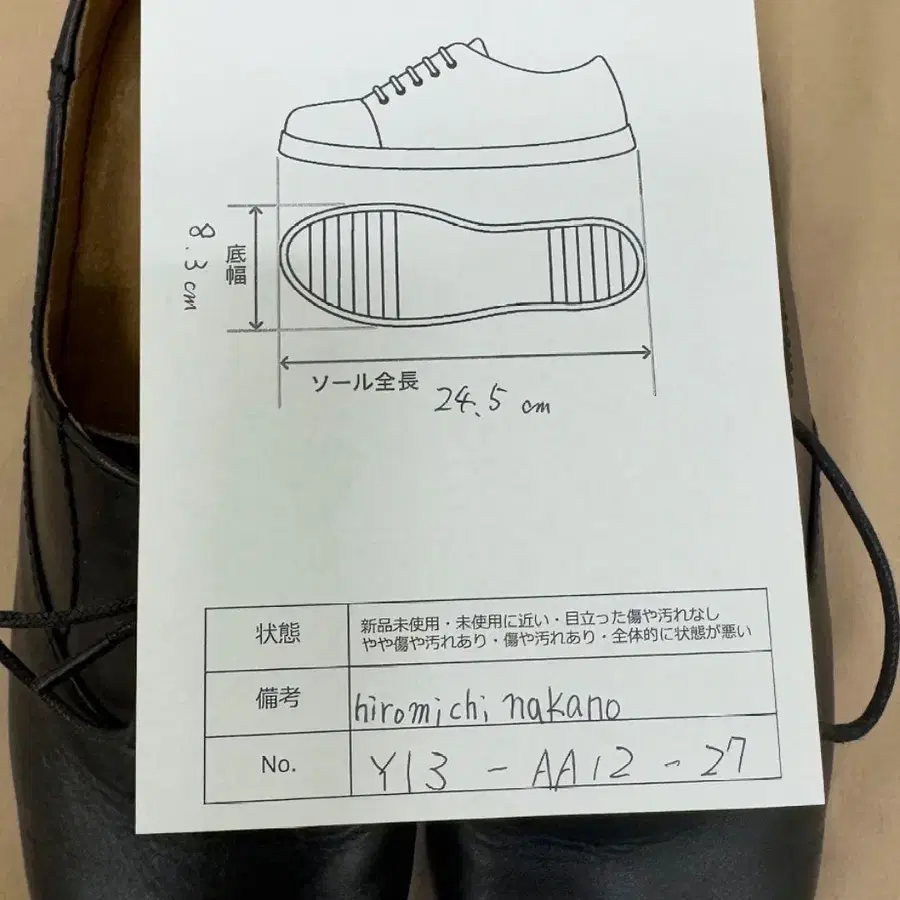 8.3cm
底幅
ソール全長
24.5 cm
状態
新品未使用・未使用に近い・目立った傷や汚れなし
やや傷や汚れあり・傷や汚れあり・全体的に状態が悪い
備考
hiromichi nakano
No.
Y13 - AA12 - 27